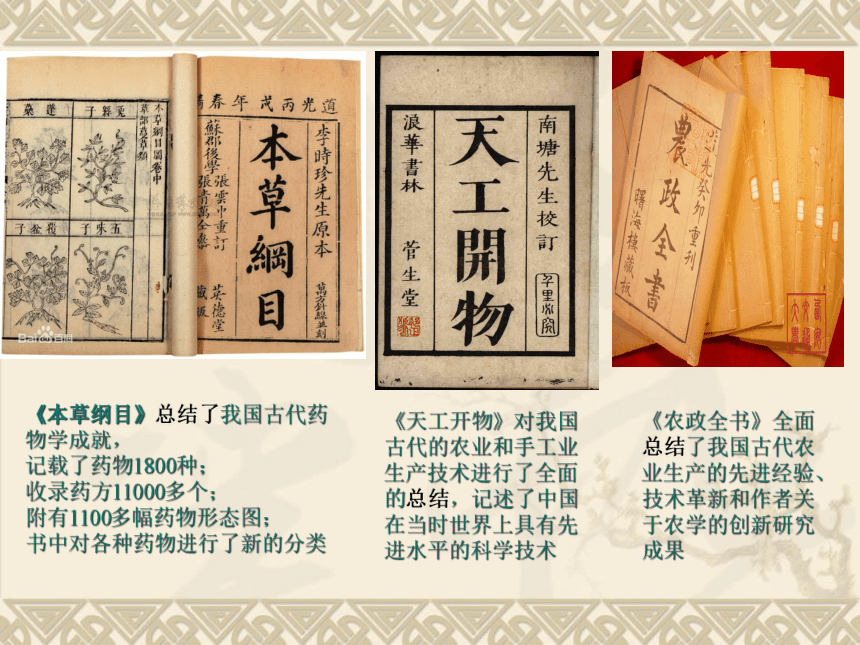 道光丙戌年春鐫
李時珍先生原本
本草綱目
蘇郡後學
張雲中重訂
張青萬仝參
英德堂
藏板
萬方針線並刻
本草綱目圖卷中
草部蔓草類
菟絲子
蓬蘽
五味子
覆盆子
Bai 百科
南塘先生校訂
天工開物
浪華書林
菅生堂
癸卯重刊
農政全書
曙海樓藏板
《本草纲目》总结了我国古代药
物学成就，
记载了药物1800种；
收录药方11000多个；
附有1100多幅药物形态图；
书中对各种药物进行了新的分类
《天工开物》对我国
古代的农业和手工业
生产技术进行了全面
的总结，记述了中国
在当时世界上具有先
进水平的科学技术
《农政全书》全面
总结了我国古代农
业生产的先进经验、
技术革新和作者关
于农学的创新研究
成果